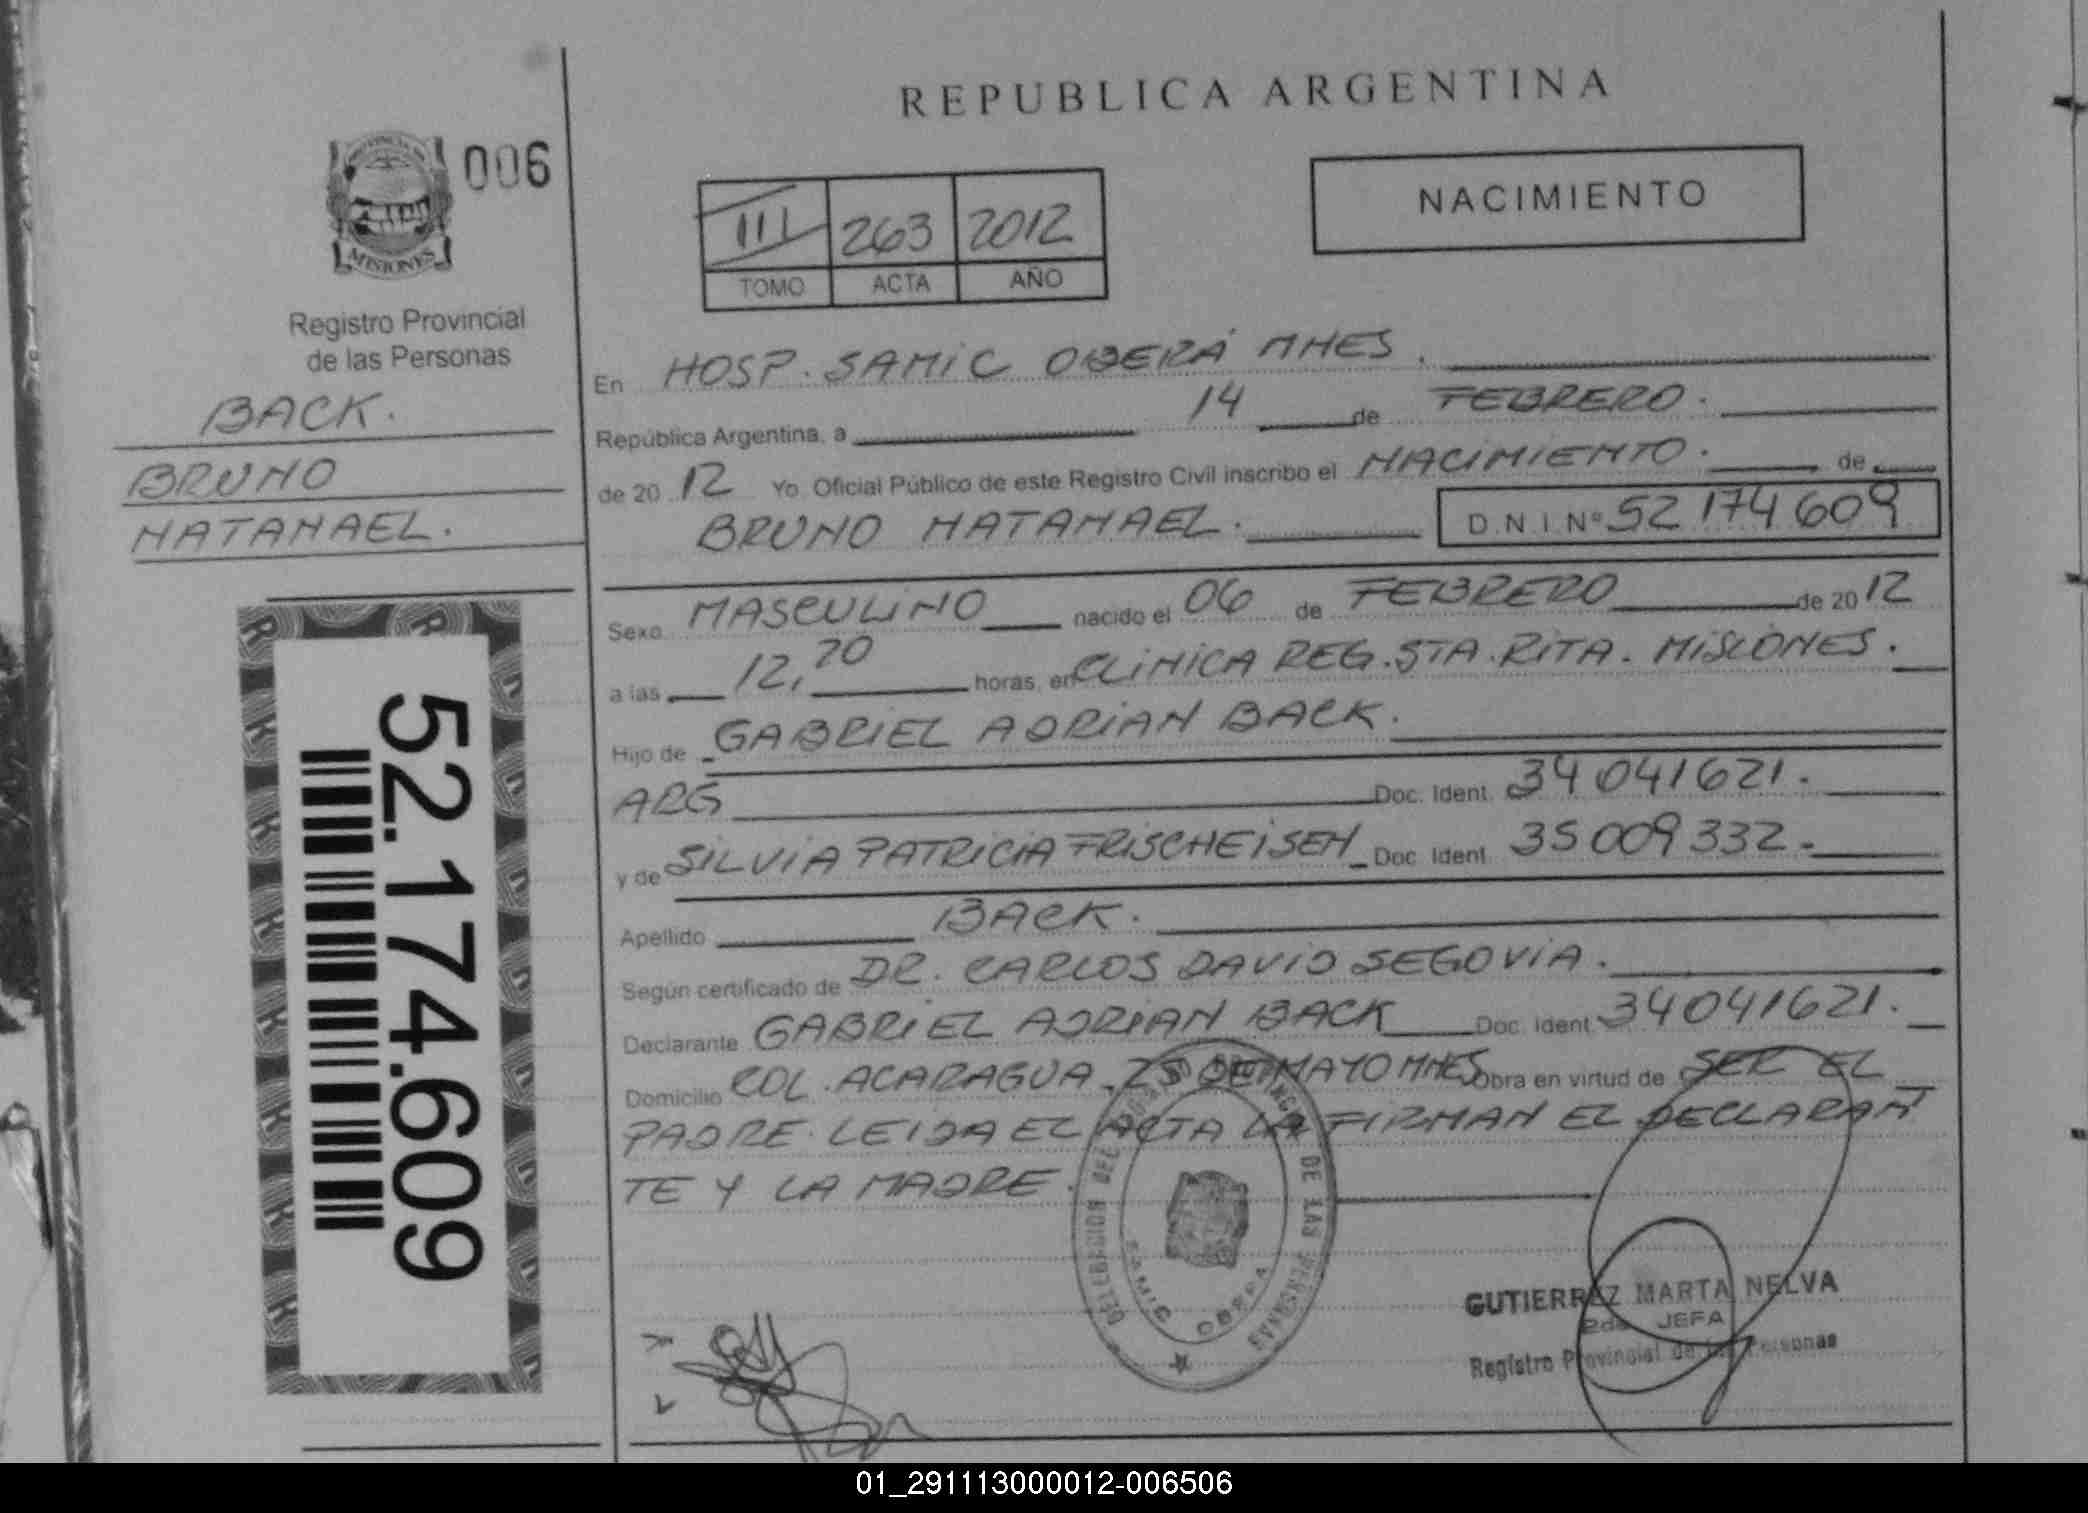 REPUBLICA ARGENTINA
006
MISIONES
Registro Provincial
de las Personas
BACK.
BRUNO
NATANAEL.
52.174.609
III 263 2012
TOMO ACTA AÑO
NACIMIENTO
En HOSP. SAMIC OBERÁ MNES.
República Argentina, a 14 de FEBRERO.
de 20 12 Yo Oficial Público de este Registro Civil inscribo el NACIMIENTO. de
BRUNO NATANAEL. D.N.I. Nº 52 174 609
Sexo MASCULINO nacido el 06 de FEBRERO de 20 12
a las 12,20 horas, en CLINICA REG. STA. RITA. MISIONES.
Hijo de GABRIEL ADRIAN BACK.
ARG Doc. Ident. 34 041621.
y de SILVIA PATRICIA FRISCHEISEN Doc. Ident. 35 009 332.
Apellido BACK.
Según certificado de DR. CARLOS DAVID SEGOVIA.
Declarante GABRIEL ADRIAN BACK Doc. Ident. 34041621.
Domicilio COL. ACARAGUA. 25 DE MAYO MNES Obra en virtud de SER EL
PADRE. LEIDA EL ACTA LA FIRMAN EL DECLARANT
TE Y LA MADRE.
DE LAS PERSONAS
SAMIC OBERA
GUTIERREZ MARTA NELVA
2da JEFA
Registro Provincial de las Personas
01_291113000012-006506